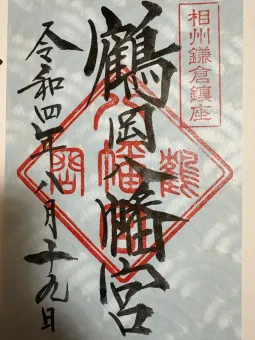 相州鎌倉鎮座
鶴岡八幡宮
令和四年八月十九日